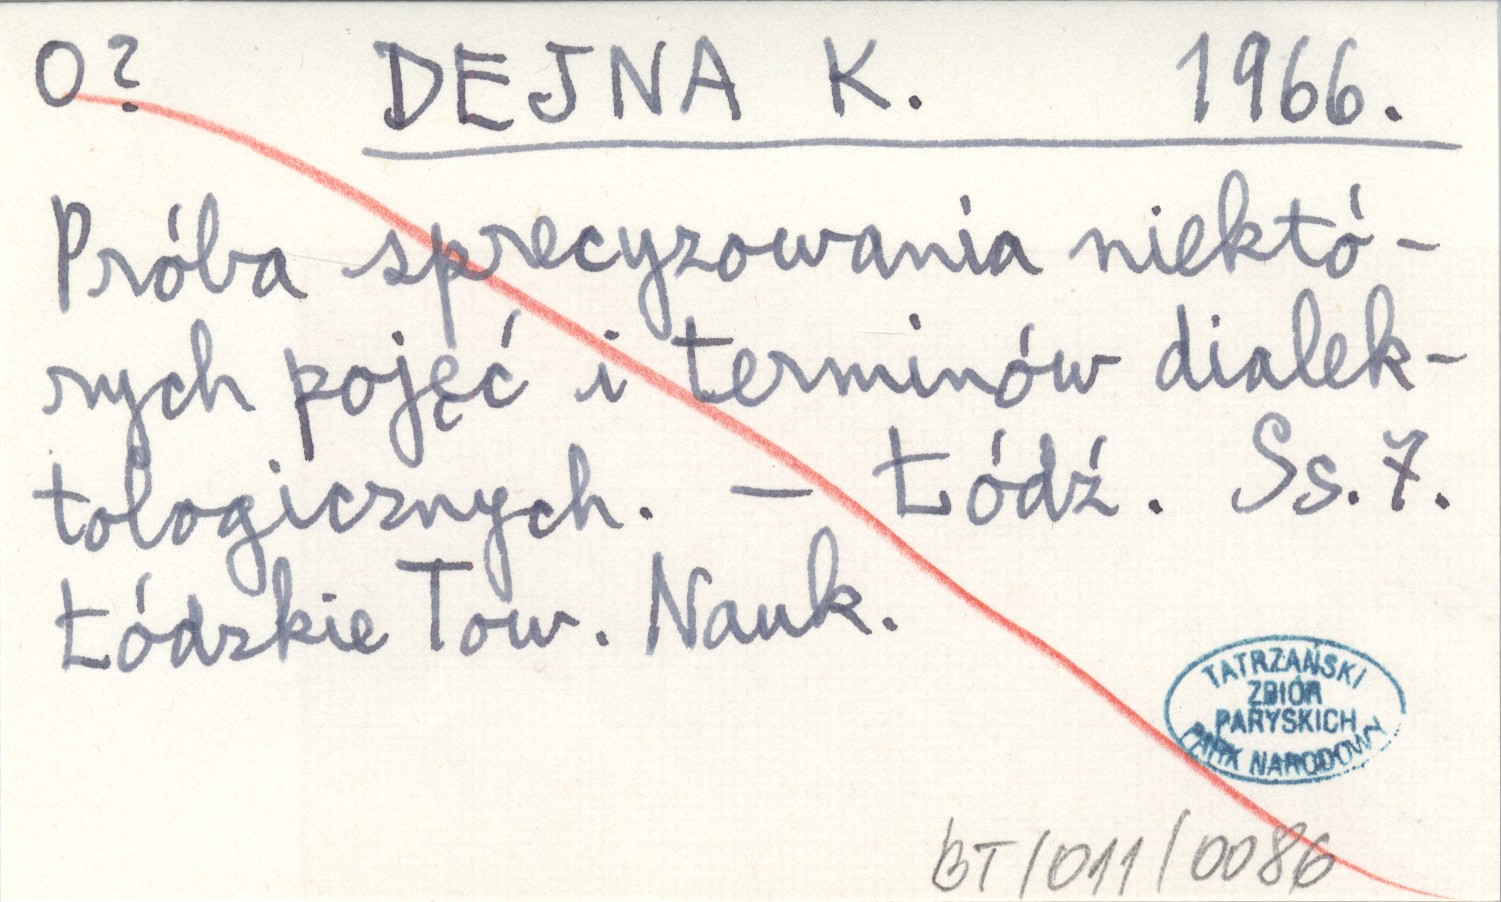 O? DEJNA K. 1966.
Próba sprecyzowania niektó-
rych pojęć i terminów dialek-
tologicznych. — Łódź. Ss. 7.
Łódzkie Tow. Nauk.
TATRZAŃSKI
ZBIÓR
PARYSKICH
PARK NARODOWY
BT/011/0086